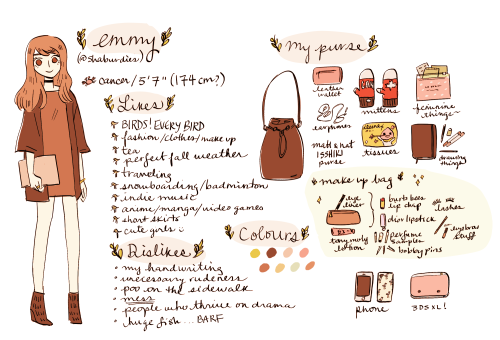 emmy
(@shaburdies)
cancer / 5'7" (174cm?)
Likes
BIRDS! EVERY BIRD
fashion/clothes/makeup
tea
perfect fall weather
traveling
snowboarding/badminton
indie music
anime/manga/video games
short skirts
cute girls
Dislikes
my handwriting
unecessary rudeness
poo on the sidewalk
mess
people who thrive on drama
huge fish... BARF
Colours
my purse
leather wallet
mittens
feminine things
earphones
matt & nat
155HIKU
purse
tissues
drawing things
make up bag
eye liner
burts bees
lip chip
lashes
dior lipstick
tony moly
lotion
perfume
sample
eyebrow
stuff
bobby pins
phone
3DS XL!